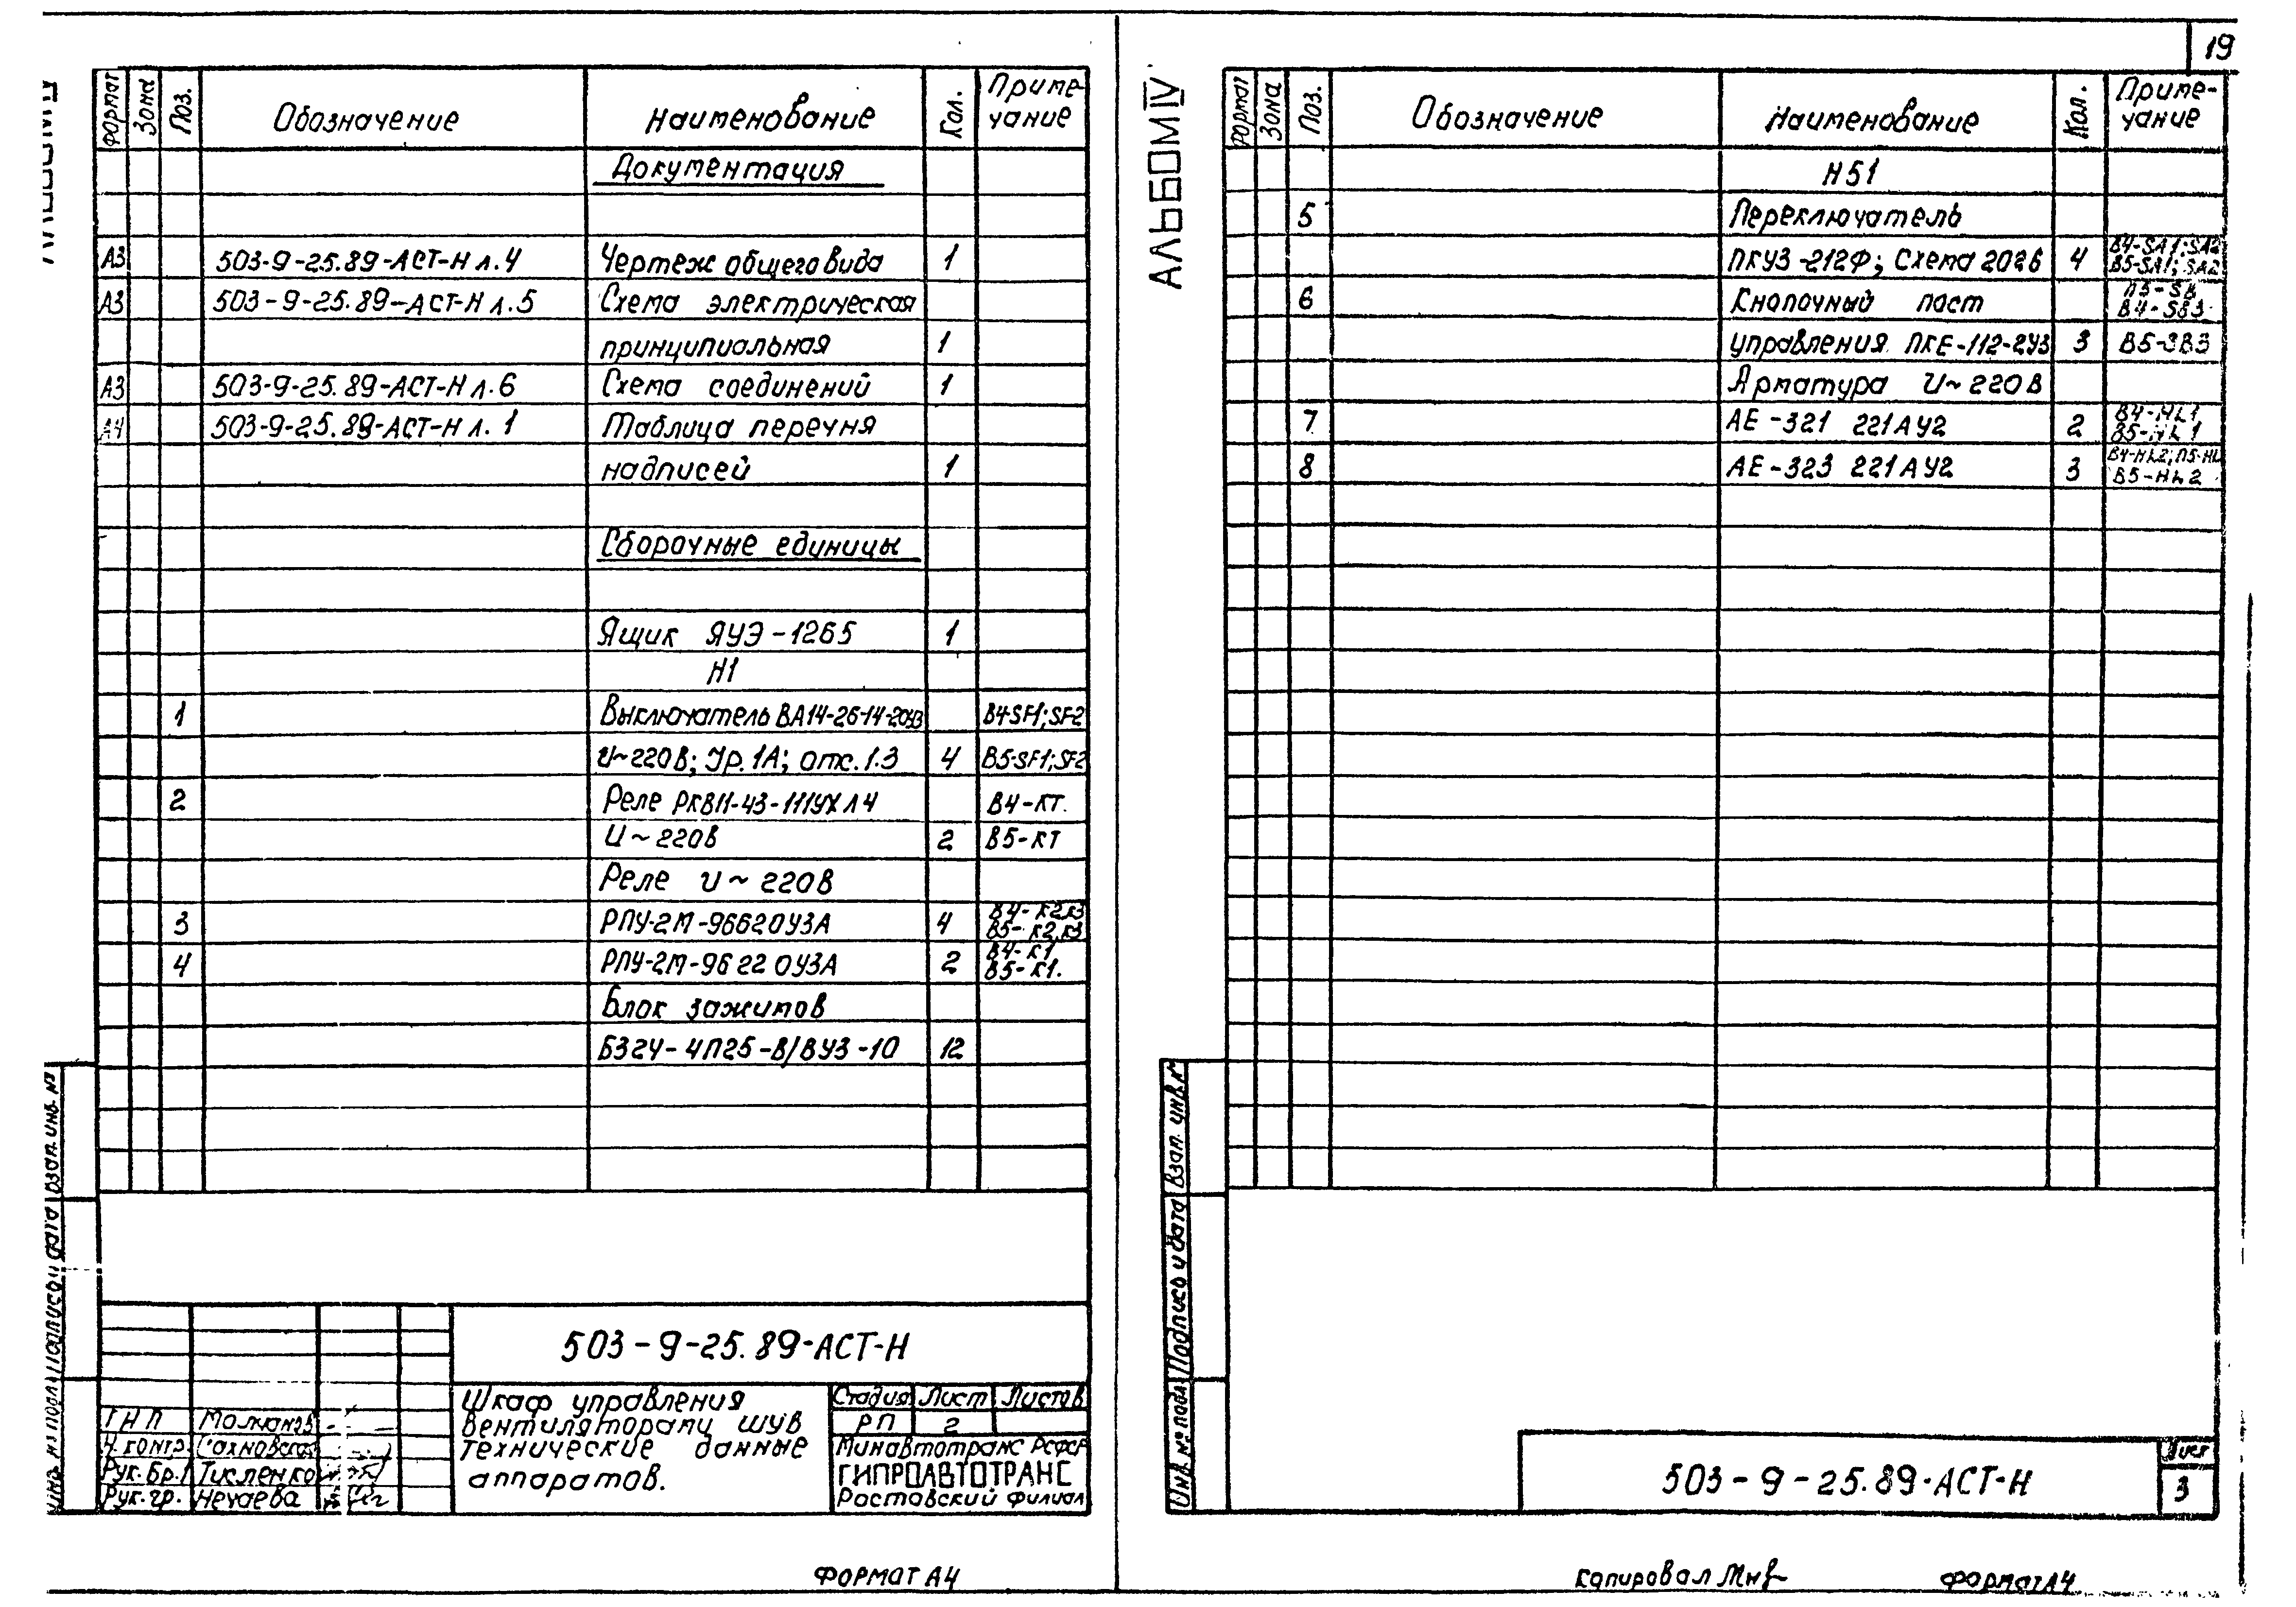 19
АЛЬБОМ IV
Формат Зона Поз. Обозначение Наименование Кол. Примечание
Документация
А3 503-9-25.89-АСТ-Н л.4 Чертеж общего вида 1
А3 503-9-25.89-АСТ-Н л.5 Схема электрическая
принципиальная 1
А3 503-9-25.89-АСТ-Н л.6 Схема соединений 1
А4 503-9-25.89-АСТ-Н л.1 Таблица перечня
надписей 1
Сборочные единицы
Ящик ЯУЭ-1265 1
Н1
1 Выключатель ВА14-26-14-20У3 В4-SF1;SF2
U~220В; Jр.1А; отс.1.3 4 В5-SF1;SF2
2 Реле РКВ11-43-111УХЛ4 В4-КТ.
U~220В 2 В5-КТ
Реле U~220В
3 РПУ-2М-96620У3А 4 В4-К2,К3
В5-К2,К3
4 РПУ-2М-96220У3А 2 В4-К1
В5-К1.
Блок зажимов
БЗ24-4П25-В/ВУ3-10 12
503-9-25.89-АСТ-Н
Шкаф управления
вентиляторами ШУВ
технические данные
аппаратов.
Стадия Лист Листов
РП 2
Минавтотранс РСФСР
ГИПРОАВТОТРАНС
Ростовский филиал
ГНП
Н. контр.
Рук. Бр. Тисленко
Рук. гр. Нечаева
Инв. № подл. Подпись и дата Взам. инв. №
ФОРМАТ А4
Формат Зона Поз. Обозначение Наименование Кол. Примечание
Н51
5 Переключатель
ПКУ3-212Ф; Схема 2026 4 В4-SA1;SA2
В5-SA1;SA2
6 Кнопочный пост П5-SB
В4-SB3
управления ПКЕ-112-2У3 3 В5-SB3
Арматура U~220В
7 АЕ-321 221АУ2 2 В4-HL1
В5-HL1
8 АЕ-323 221АУ2 3 В4-HL2; П5-HL
В5-HL2
Инв. № подл. Подпись и дата Взам. инв. №
503-9-25.89-АСТ-Н
Лист
3
Копировал
ФОРМАТ А4